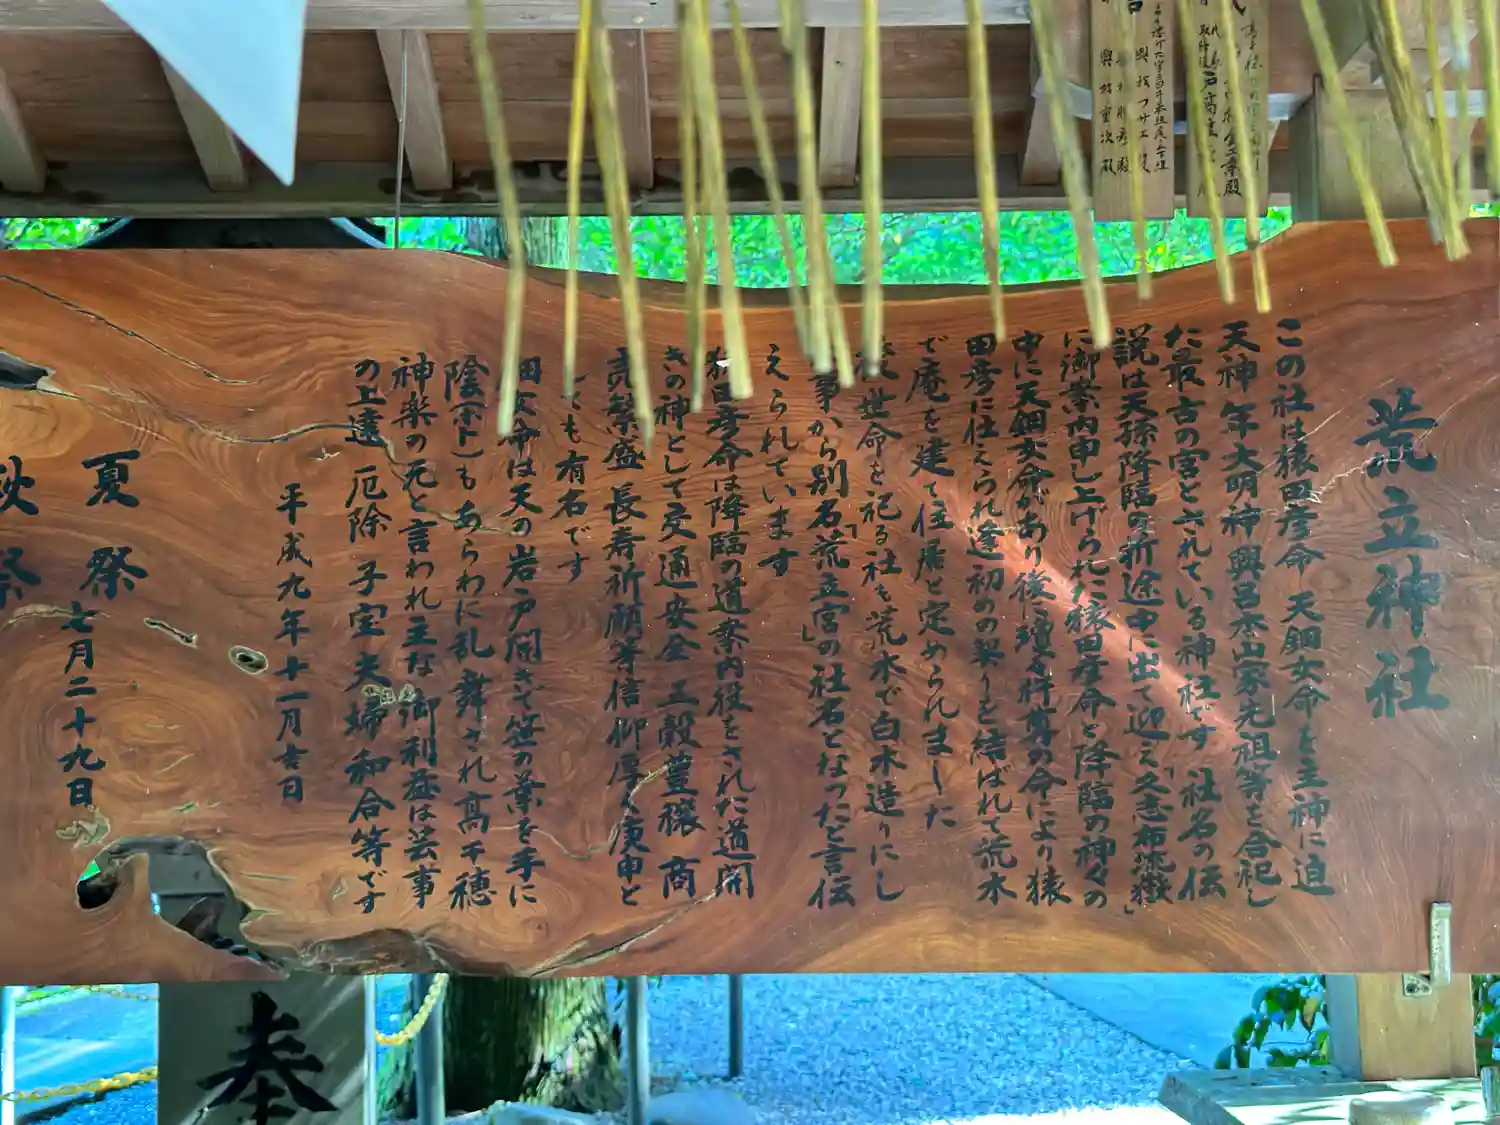 荒立神社
この社は猿田彦命 天鈿女命を主神に迫
天神 年大明神 興呂木山家先祖等を合祀し
た最古の宮とされている神社です 社名の伝
説は天孫降臨の折途中に出て迎え「久志布流嶽」
に御案内申し上げられた猿田彦命と降臨の神々の
中に天鈿女命があり後に瓊々杵尊の命により猿
田彦に仕えられ逢初めの契りを結ばれて荒木
で庵を建て住居と定められました
後世命を祀る社も荒木で白木造りにし
事から別名「荒立宮」の社名となったと言伝
えられています
猿田彦命は降臨の道案内役をされた道開
きの神として交通安全 五穀豊穣 商
売繁盛 長寿祈願等信仰厚く庚申と
しても有名です
鈿女命は天の岩戸開きで笹の葉を手に
陰(ホト)もあらわに乱舞され高千穂
神楽の元と言われ主な御利益は芸事
の上達 厄除 子宝 夫婦和合等です
平成九年十一月吉日
夏祭 七月二十九日
秋祭
奉
興梠重次殿